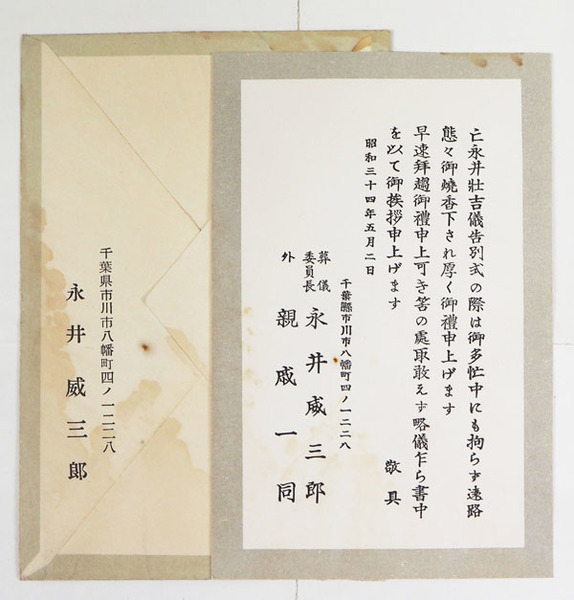 亡永井壯吉儀告別式の際は御多忙中にも拘らず遠路
態々御燒香下され厚く御禮申上げます
早速拜趨御禮申上可き筈の處取敢えず略儀乍ら書中
を以て御挨拶申上げます
敬具
昭和三十四年五月二日
千葉縣市川市八幡町四ノ一二二八
葬儀委員長 永井威三郎
外 親戚一同
千葉県市川市八幡町四ノ一二二八
永井威三郎